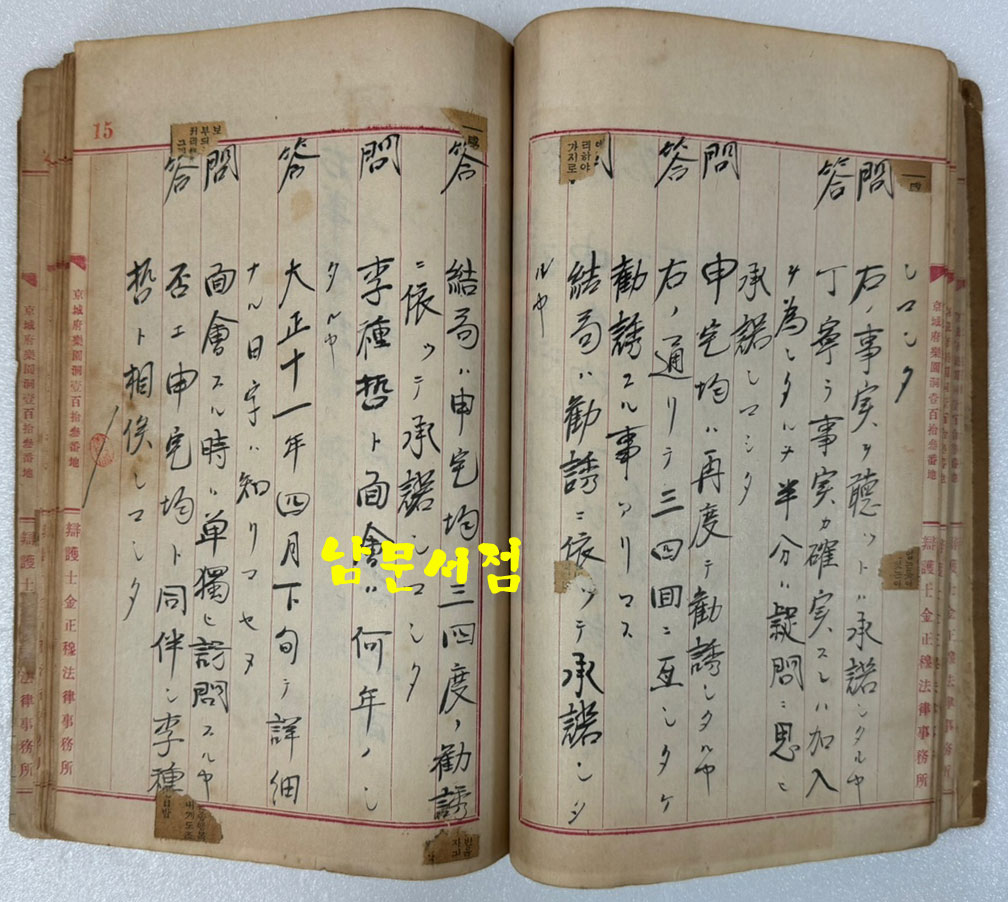 シマシタ
問 右ノ事実ヲ聴ットハ承諾シタルヤ
答 丁寧ラ事実カ確実スレハ加入
ヲ為シタルヲ半分ハ疑問ニ思ヒ
承諾シマシタ
問 申完均ハ再度テ勧誘シタルヤ
答 右ノ通リテ三四回ニ亙シタケ
勧誘スル事アリマス
問 結局ハ勧誘ニ依ッテ承諾シシ
ルヤ
京城府樂園洞壹百拾叁番地
辯護士金正穆法律事務所
答 結局ハ申完均三四度ノ勧誘
ニ依ッテ承諾シマシタ
問 李種哲ト面會ハ何年ノシ
タルヤ
答 大正十一年四月下旬テ詳細
ナル日字ハ知リマセヌ
問 面會スル時ハ単獨ヒ訪問スルヤ
答 否エ申完均ト同伴シ李種
哲ト相俟シマシタ
15
京城府樂園洞壹百拾叁番地
辯護士金正穆法律事務所
남문서점